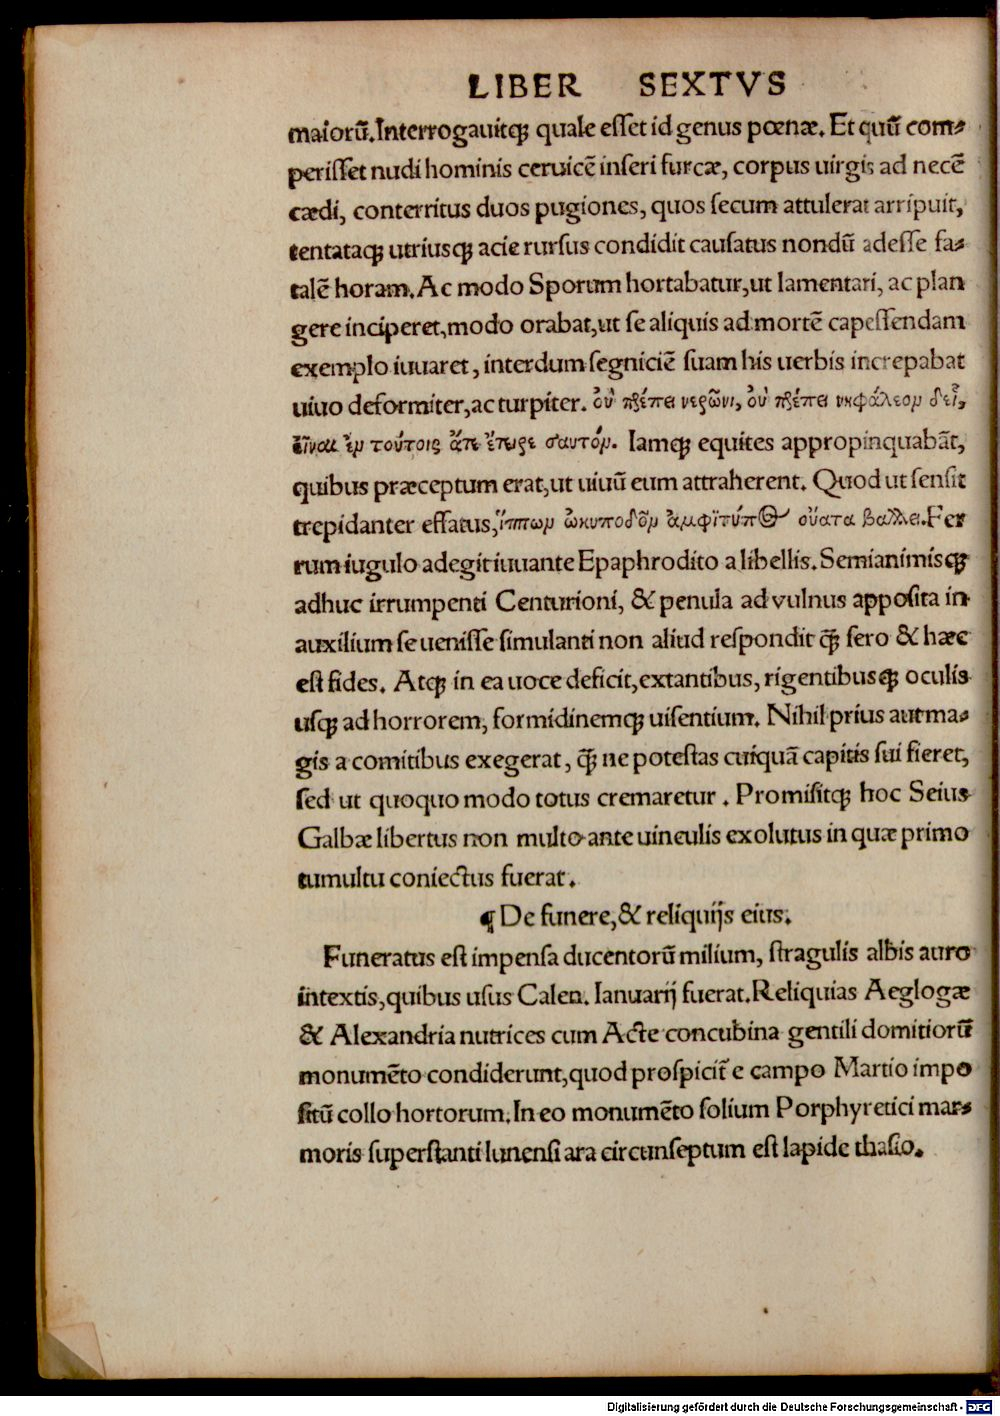 LIBER SEXTVS
maiorũ. Interrogauitq; quale esset id genus pœnæ. Et quũ com-
perisset nudi hominis ceruicẽ inseri furcæ, corpus uirgis ad necẽ
cædi, conterritus duos pugiones, quos secum attulerat arripuit,
tentataq; utriusq; acie rursus condidit causatus nondũ adesse fa-
talẽ horam. Ac modo Sporum hortabatur, ut lamentari, ac plan
gere inciperet, modo orabat, ut se aliquis ad mortẽ capessendam
exemplo iuuaret, interdum segniciẽ suam his uerbis increpabat
uiuo deformiter, ac turpiter. οὐ πρέπει νερῶνι, οὐ πρέπει νηφάλεομ δεῖ,
εἶναι ἐμ τούτοις ἄπε ἔπιρε σαυτόμ. Iamq; equites appropinquabãt,
quibus præceptum erat, ut uiuũ eum attraherent. Quod ut sensit
trepidanter effatus, ἵππωμ ὠκυποδῶμ ἀμφϊτύπος οὔατα βαλλει. Fer
rum iugulo adegit iuuante Epaphrodito a libellis. Semianimisq;
adhuc irrumpenti Centurioni, & penula ad vulnus apposita in
auxilium se uenisse simulanti non aliud respondit q̃ sero & hæc
est fides. Atq; in ea uoce deficit, extantibus, rigentibusq; oculis
usq; ad horrorem, formidinemq; uisentium. Nihil prius aut ma-
gis a comitibus exegerat, q̃ ne potestas cuiquã capitis sui fieret,
sed ut quoquo modo totus cremaretur. Promisitq; hoc Seius
Galbæ libertus non multo ante uinculis exolutus in quæ primo
tumultu coniectus fuerat.
¶ De funere, & reliquijs eius.
Funeratus est impensa ducentorũ milium, stragulis albis auro
intextis, quibus usus Calen. Ianuarij fuerat. Reliquias Aeglogæ
& Alexandria nutrices cum Acte concubina gentili domitiorũ
monumẽto condiderunt, quod prospicit̃ e campo Martio impo
sitũ collo hortorum. In eo monumẽto solium Porphyretici mar-
moris superstanti lunensi ara circunseptum est lapide thasio.
Digitalisierung gefördert durch die Deutsche Forschungsgemeinschaft - DFG